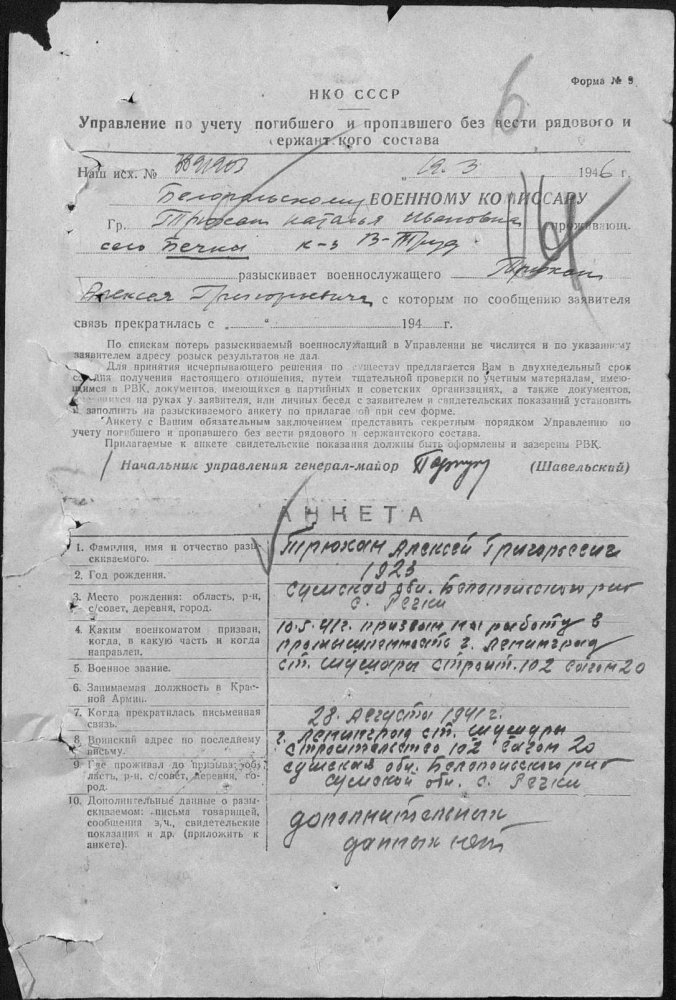 Форма № 9
6
НКО СССР
Управление по учету погибшего и пропавшего без вести рядового и
сержантского состава
Наш исх. № 19.3 1946 г.
Белопольскому ВОЕННОМУ КОМИССАРУ
Гр. Трюхан Наталья Ивановна проживающ.
село Речки к-з В-Труд
разыскивает военнослужащего Трюхан
Алексея Григорьевича, с которым по сообщению заявителя
связь прекратилась с „ “ 194 г.
По спискам потерь разыскиваемый военнослужащий в Управлении не числится и по указанному
заявителем адресу розыск результатов не дал.
Для принятия исчерпывающего решения по существу предлагается Вам в двухнедельный срок
со дня получения настоящего отношения, путем тщательной проверки по учетным материалам, имею-
щимся в РВК, документов, имеющихся в партийных и советских организациях, а также документов,
имеющихся на руках у заявителя, или личных бесед с заявителем и свидетельских показаний установить
и заполнить на разыскиваемого анкету по прилагаемой при сем форме.
Анкету с Вашим обязательным заключением представить секретным порядком Управлению по
учету погибшего и пропавшего без вести рядового и сержантского состава.
Прилагаемые к анкете свидетельские показания должны быть оформлены и заверены РВК.
Начальник управления генерал-майор (Шавельский)
АНКЕТА
1. Фамилия, имя и отчество разы-
скиваемого.
Трюхан Алексей Григорьевич
2. Год рождения.
1923
3. Место рождения: область, р-н,
с/совет, деревня, город.
Сумской обл. Белопольского р-на
с. Речки
4. Каким военкоматом призван,
когда, в какую часть и когда
направлен.
10.5.41г. призван на работу в
промышленность г. Ленинград
5. Военное звание.
ст. Шушары строит. 102 вагон 20
6. Занимаемая должность в Крас-
ной Армии.
7. Когда прекратилась письменная
связь.
28. Августа 1941г.
8. Воинский адрес по последнему
письму.
г. Ленинград ст. Шушары
строительство 102 вагон 20
9. Где проживал до призыва: об-
ласть, р-н, с/совет, деревня, го-
род.
Сумская обл. Белопольского р-на
Сумской обл. с. Речки
10. Дополнительные данные о разы-
скиваемом: письма товарищей,
сообщения в/ч., свидетельские
показания и др. (приложить к
анкете).
дополнительных
данных нет